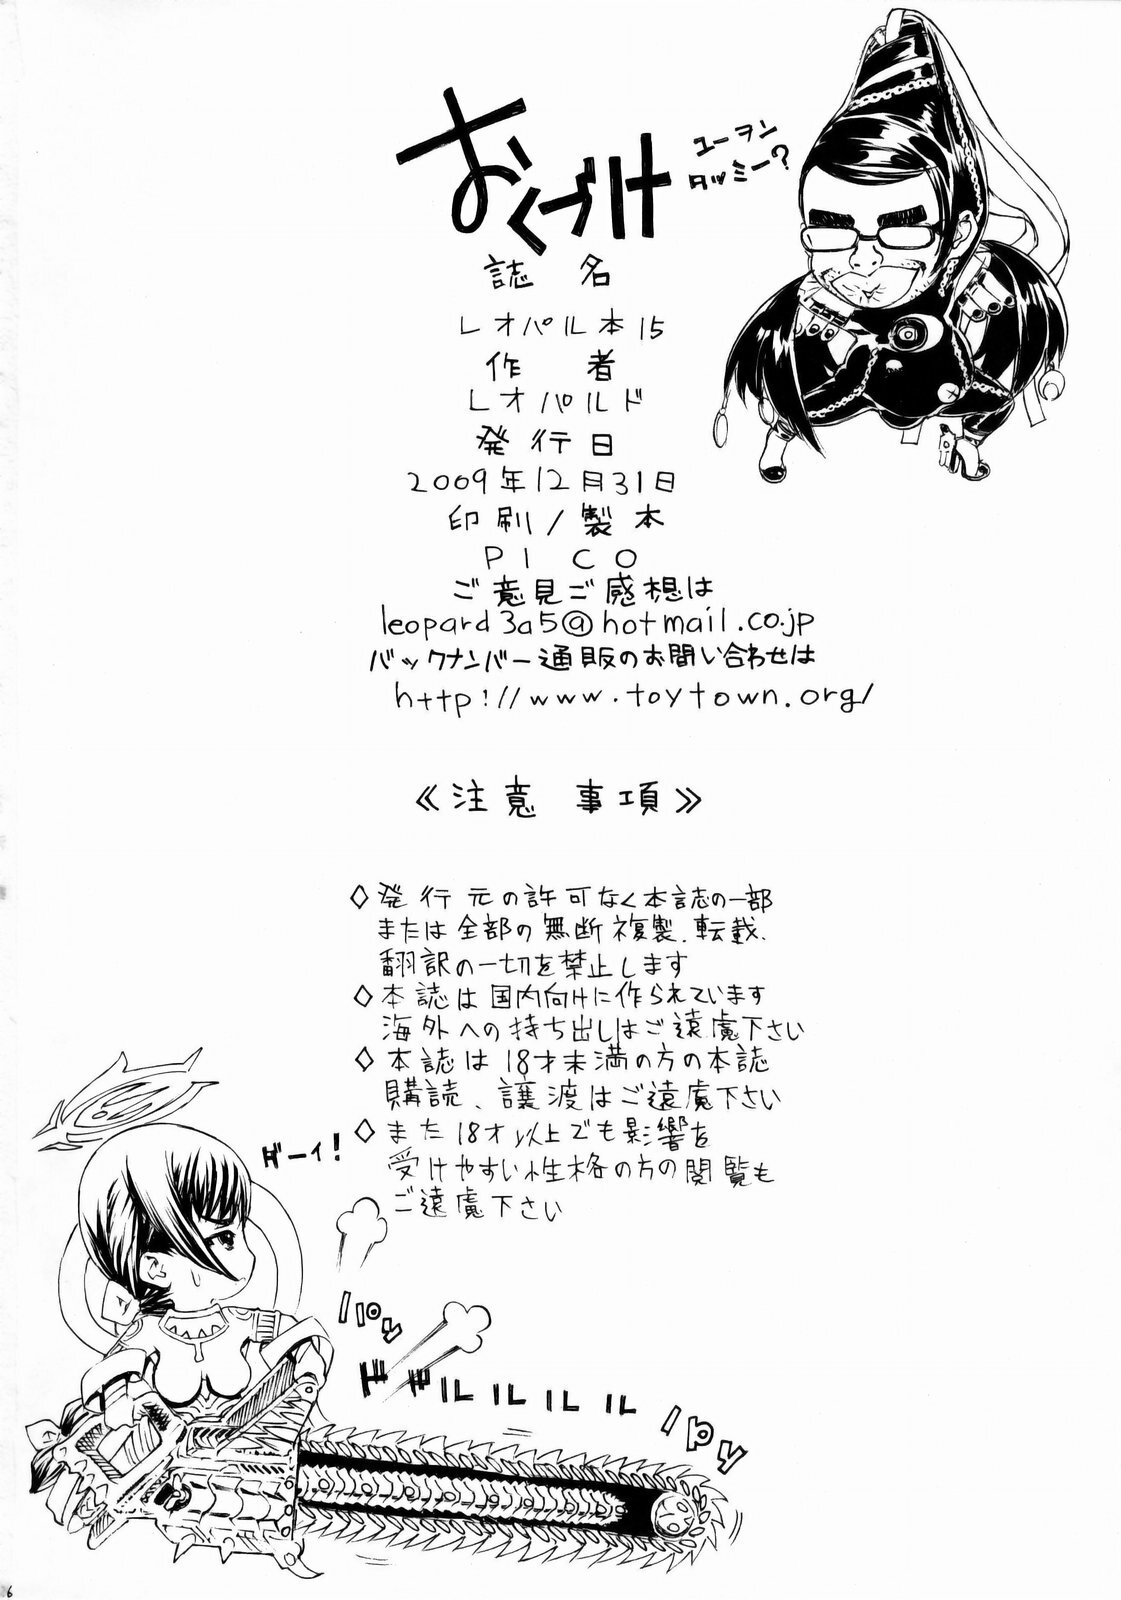 おくづけ
ユーヲン
タッミー?
誌名
レオパル本15
作者
レオパルド
発行日
2009年12月31日
印刷/製本
PICO
ご意見ご感想は
leopard3a5@hotmail.co.jp
バックナンバー通販のお問い合わせは
http://www.toytown.org/
≪注意事項≫
◇発行元の許可なく本誌の一部
または全部の無断複製、転載、
翻訳の一切を禁止します
◇本誌は国内向けに作られています
海外への持ち出しはご遠慮下さい
◇本誌は18才未満の方の本誌
購読、譲渡はご遠慮下さい
◇また18才以上でも影響を
受けやすい性格の方の閲覧も
ご遠慮下さい
ガーイ!
パパッ
ドドルルルルル
パパッ
6